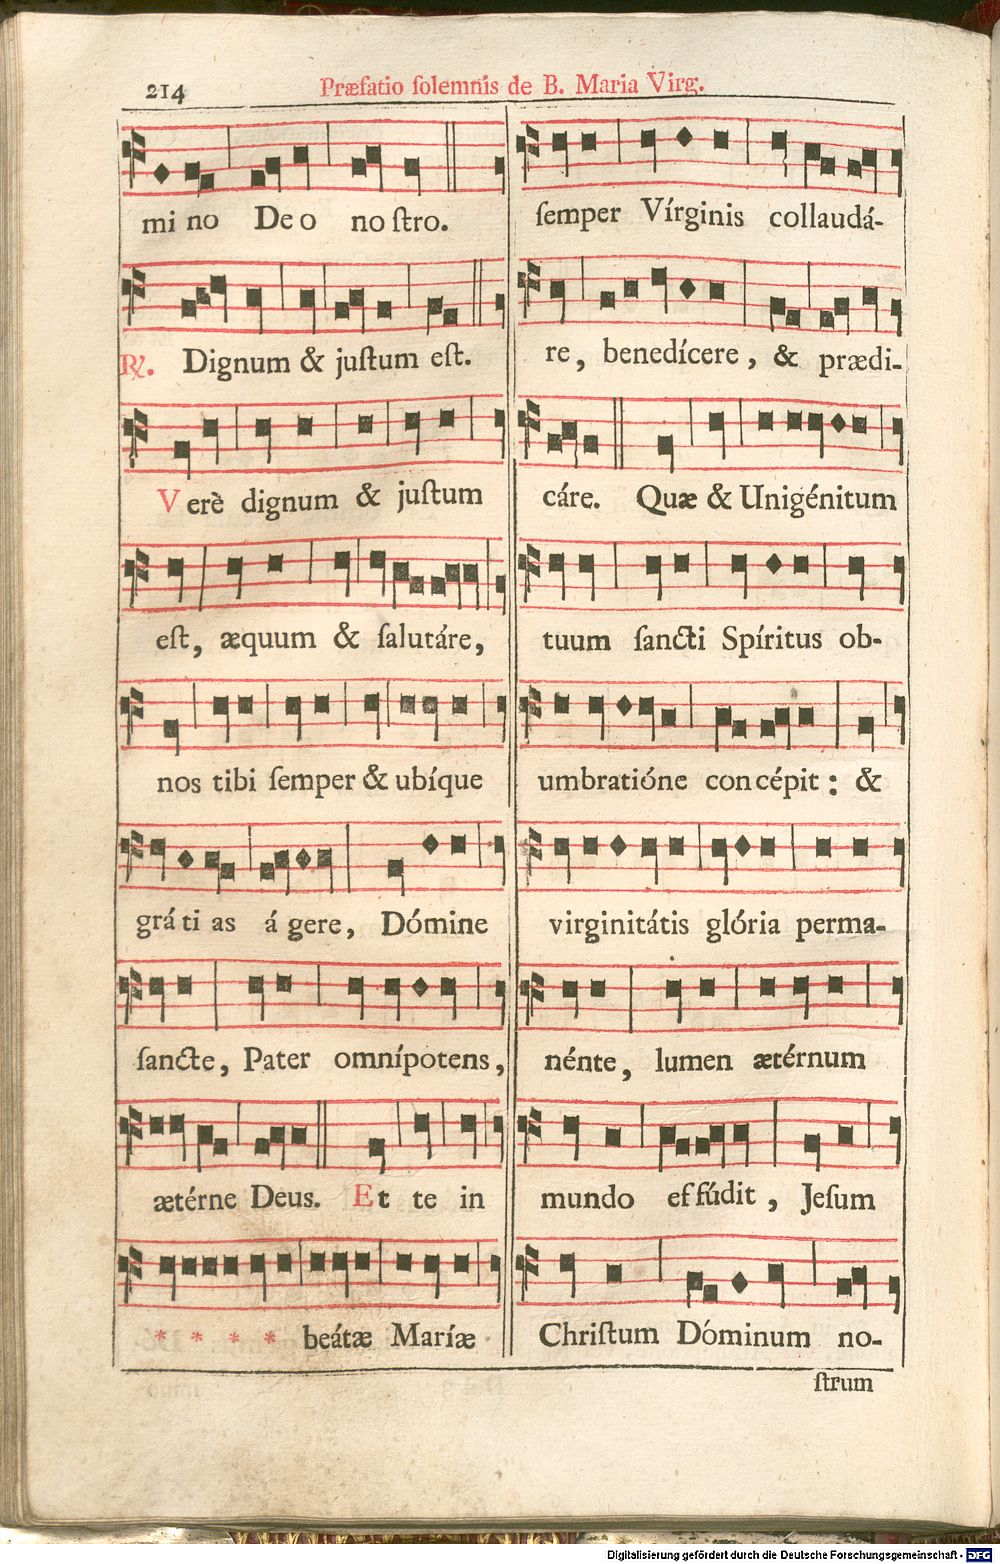 214
Præfatio ſolemnis de B. Maria Virg.
mi no De o no ſtro.
℟. Dignum & juſtum eſt.
Verè dignum & juſtum
eſt, æquum & ſalutáre,
nos tibi ſemper & ubíque
grá ti as á gere, Dómine
ſancte, Pater omnípotens,
ætérne Deus. Et te in
* * * * beátæ Maríæ
ſemper Vírginis collaudá-
re, benedícere, & prædi-
cáre. Quæ & Unigénitum
tuum ſancti Spíritus ob-
umbratióne concépit: &
virginitátis glória perma-
nénte, lumen ætérnum
mundo effúdit, Jeſum
Chriſtum Dóminum no-
ſtrum
Digitalisierung gefördert durch die Deutsche Forschungsgemeinschaft - DFG